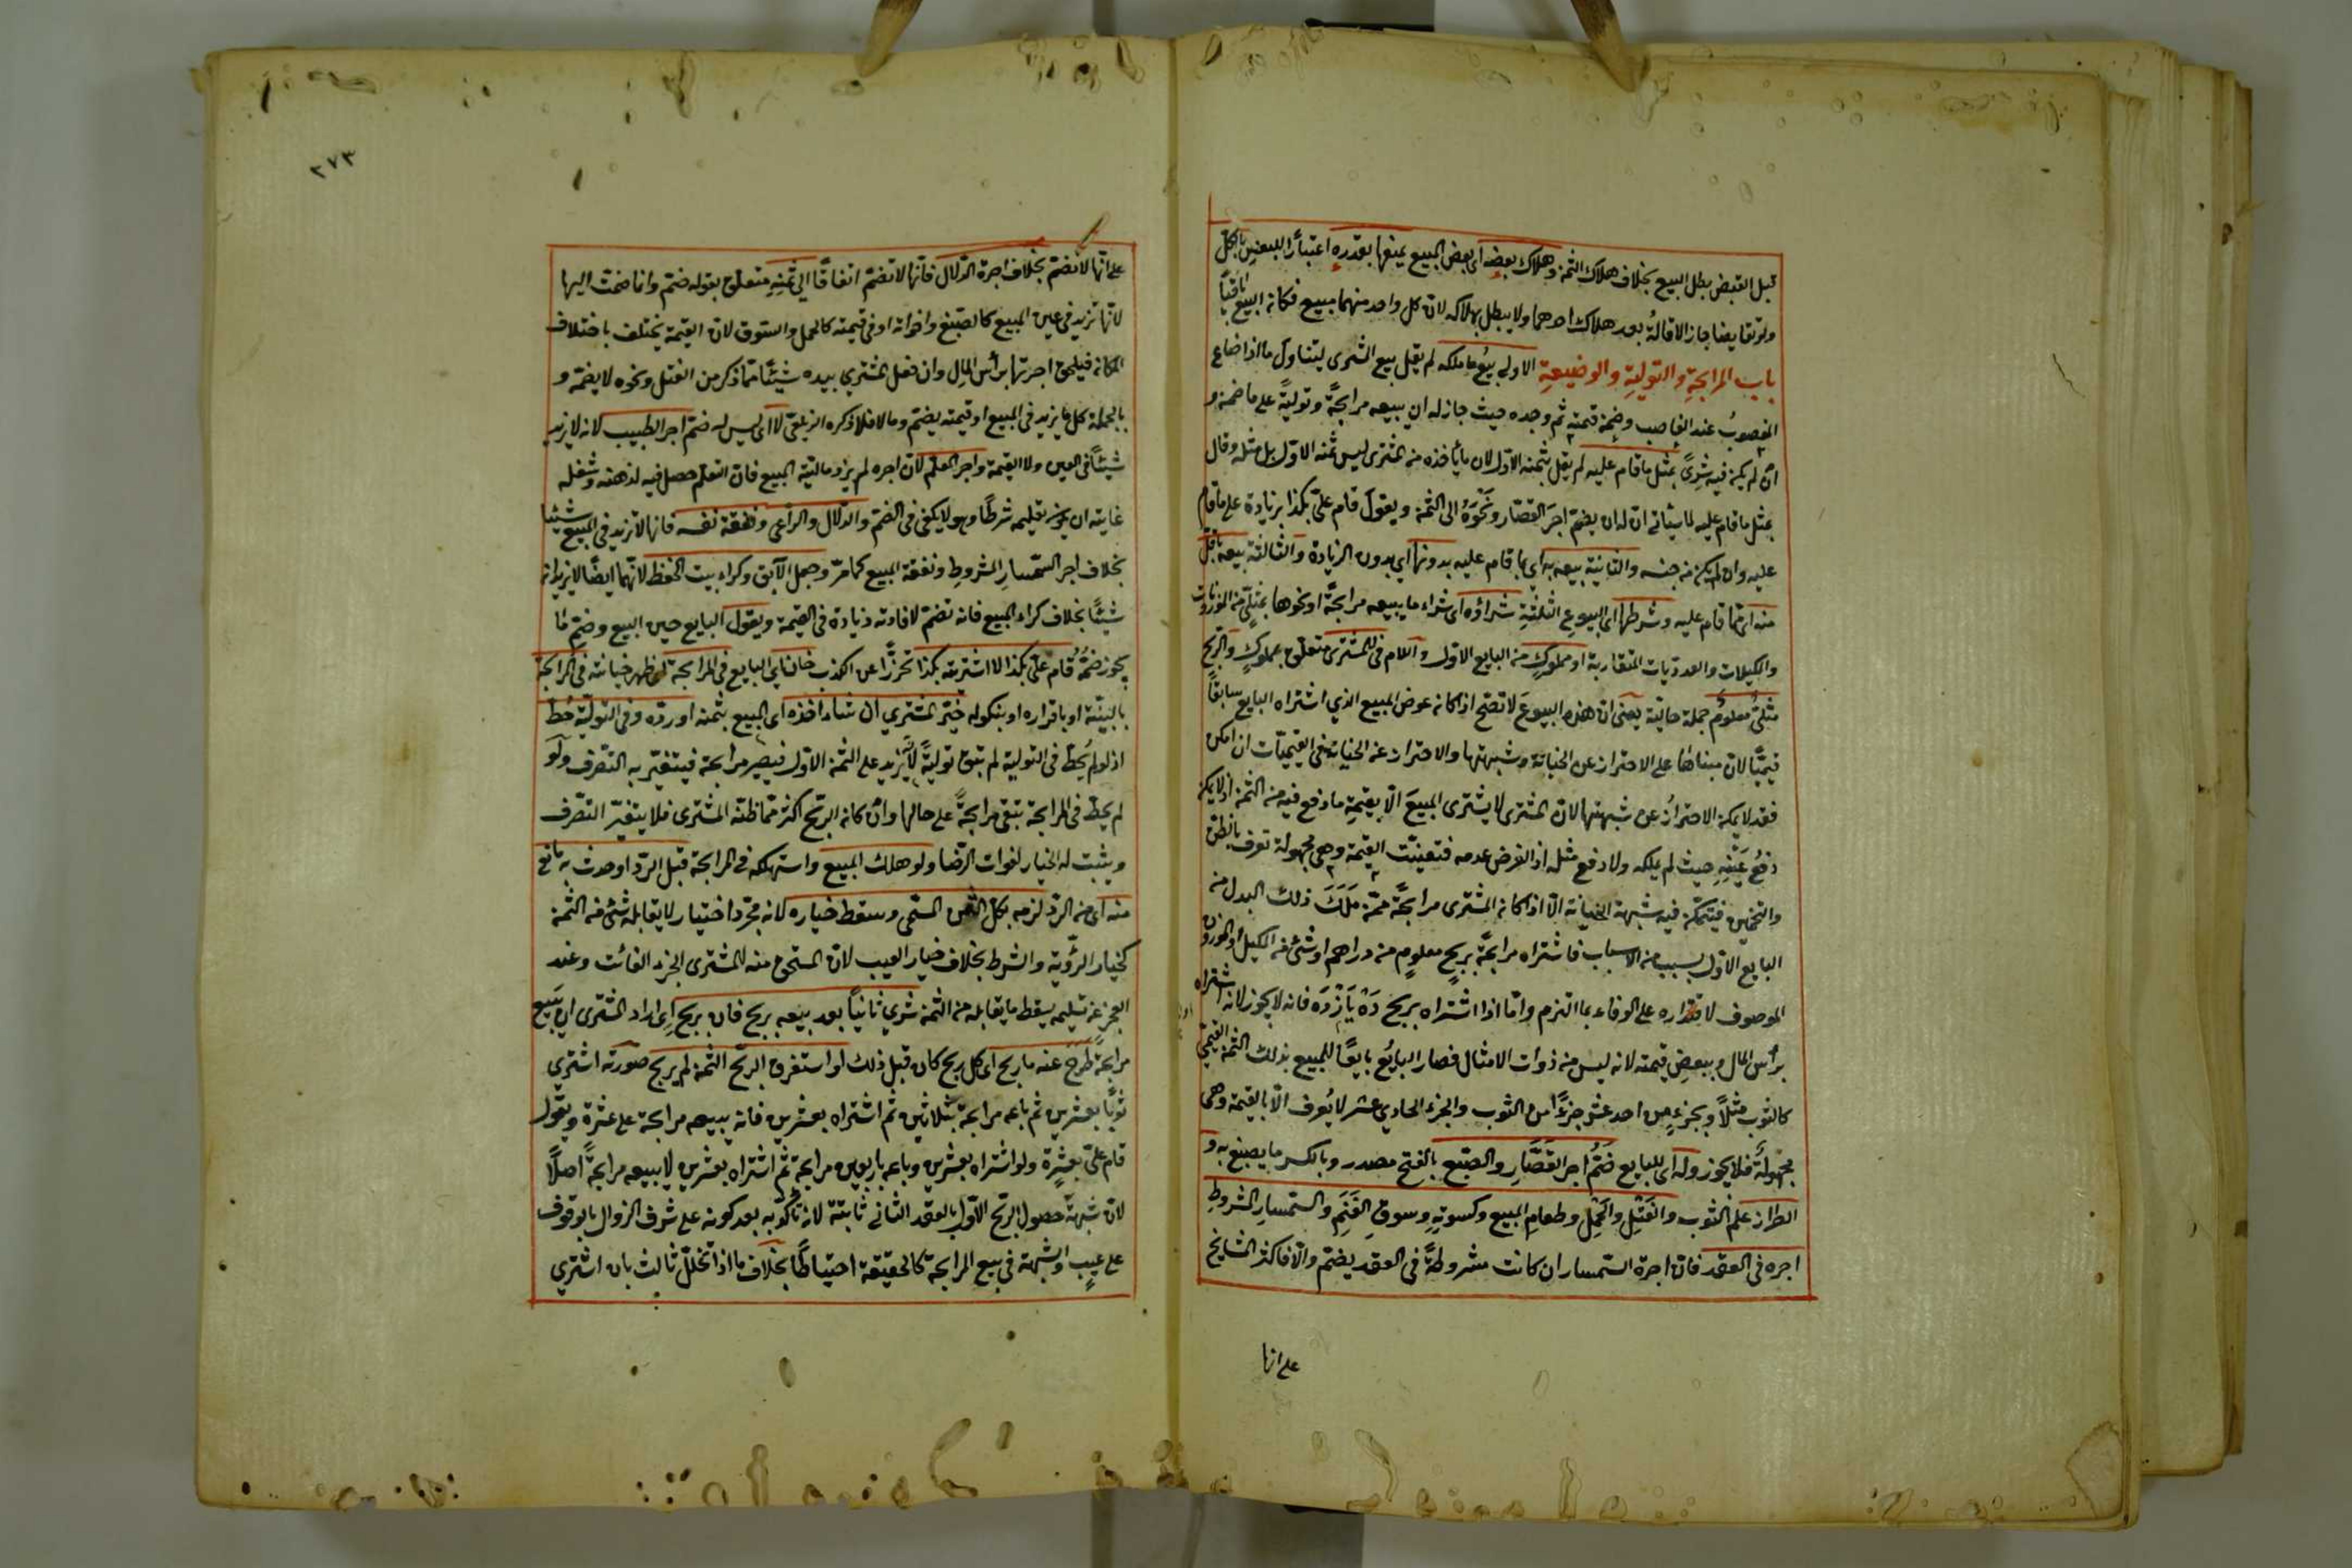 قبل القبض بطل البيع بخلاف هلاك الثمن وهلاك بعضه اى بعض المبيع يمنعها بقدره اعتبارًا للبعض بالكل
ولو تقايضا جاز الاقالة بعد هلاك احدهما ولا يبطل بهلاكه لان كل واحد منهما مبيع فكان البيع باقيًا
باب المرابحة والتولية والوضيعة الاولى بيع ما ملكه لم يقل بيع المشترى ليتناول ما اذا ضاع
المغصوب عند الغاصب وضمن قيمته ثم وجده حيث جاز له ان يبيعه مرابحةً وتوليةً على ما ضمن و
ان لم يكن فيه شرى بمثل ما قام عليه لم يقل بثمنه الاول لان ما يأخذه من المشترى ليس ثمنه الاول بل مثله وقال
بمثل ما قام عليه لما سيأتى ان له ان يضم اجر القصار ونحوه الى الثمن ويقول قام علىّ بكذا بزيادة على ما قام
عليه وان لم يكن من جنسه والثانية بيعه به اى بما قام عليه بدونها اى بدون الزيادة والثالثة بيعه باقل
منه اى مما قام عليه وشرطها اى البيوع الثلثة شراؤه اى شراء ما يبيعه مرابحةً او نحوها بمثلى من الموزونات
والمكيلات والعدديات المتقاربة او مملوك من البايع الاول واللام فى للمشترى متعلق بمملوك والربح
مثلى معلوم جملة حالية يعنى ان هذه البيوع لا تصح اذا كان عوض المبيع الذي اشتراه البايع سابقًا
قيميًا لان مبناها على الاحتراز عن الخيانة وشبهتها والاحتراز عن الخيانة فى القيميات ان امكن
فقد لا يمكن الاحتراز عن شبهتها لان المشترى لا يشترى المبيع الا بقيمة ما دفع فيه من الثمن اذ لا يمكن
دفع عينه حيث لم يملكه ولا دفع مثله اذ الفرض عدمه فتعينت القيمة وهى مجهولة تعرف بالظن
والتخمين فيتمكن فيه شبهة الخيانة الا اذا كان المشترى مرابحةً ممن ملك ذلك البدل من
البايع الاول بسبب من الاسباب فاشتراه مرابحةً بربح معلوم من دراهم او شئ من الكيل والموزون
الموصوف لاقتداره على الوفاء بما التزم واما اذا اشتراه بربح ده يازده فانه لا يجوز لانه اشتراه
برأس المال وببعض قيمته لانه ليس من ذوات الامثال فصار البائع بايعًا للمبيع بذلك الثمن القيمى
كالثوب مثلاً وبجزء من احد عشر جزءًا من الثوب والجزء الحادي عشر لا يعرف الا بالقيمة وهى
مجهولةً فلا يجوز وله اى للبايع ضم اجر القصار والصبغ بالفتح مصدر وبالكسر ما يصبغ به و
الطراز علم الثوب والفتل والحمل وطعام المبيع وكسوته وسوق الغنم والسمسار المشروط
اجره فى العقد فان اجرة السمسار ان كانت مشروطةً فى العقد يضم والا فاكثر المشايخ
على انها
٢٧٣
على انها لا تضم بخلاف اجرة الدلال فانها لا تضم اتفاقًا الى ثمنه متعلق بقوله ضم وانما ضمت اليها
لانها تزيد فى عين المبيع كالصبغ واخواته او فى قيمته كالحمل والسوق لان القيمة يختلف باختلاف
المكان فيلحق اجرتها برأس المال وان فعل المشتري بيده شيئًا مما ذكر من الفتل ونحوه لا يضمه و
بالجملة كل ما يزيد فى المبيع او قيمته يضم وما لا فلا ذكره الزيلعى لا اى ليس له ضم اجر الطبيب لانه لا يزيد
شيئًا فى العين ولا القيمة واجر المعلم لان اجره لم يزد مالية المبيع فان التعلم حصل فيه لذهنه وشغله
غايته ان يكون تعليمه شرطًا وهو لا يكفى فى الضم والدلال والراعى ونفقة نفسه فانها لا تزيد فى المبيع شيئا
بخلاف اجر السمسار المشروط ونفقة المبيع كما مرّ وجعل الآبق وكراء بيت الحفظ لانهما ايضًا لا يزيدان
شيئًا بخلاف كراء المبيع فانه تضم لافادته زيادة فى القيمة ويقول البايع حين البيع وضم ما
يجوز ضمه قام علىّ بكذا لا اشتريته بكذا تحرزًا عن الكذب خان اى البايع فى المرابحة اى ظهر خيانته فى المرابحة
بالبينة او باقراره او بنكوله خيّر المشتري ان شاء اخذه اى المبيع بثمنه او رده وفى التولية حط
اذ لو لم يُحط فى التولية لم تبق توليةً لانه يزيد على الثمن الاول فيصير مرابحة فيتغير به التصرف ولو
لم يحط فى المرابحة تبقى مرابحةً على حالها وان كان الربح اكثر مما ظنه المشترى فلا يتغير التصرف
ويثبت له الخيار لفوات الرضا ولو هلك المبيع واستهلكه فى المرابحة قبل الرد او حدث به مانع
منه اى من الرد لزمه بكل الثمن المسمى وسقط خياره لانه مجرد اختيار لا يقابله شئ من الثمن
كخيار الرؤية والشرط بخلاف خيار العيب لان المستحق منه للمشترى الجزء الفائت وعند
العجز عن تسليمه يسقط ما يقابله من الثمن شري ثانيًا بعد بيعه بربح فان بربح اى اراد المشترى ان يبيع
مرابحةً طرح عنه ما ربح اى كل ربح كان قبل ذلك لو استغرق الربح الثمن لم يربح صورته اشتري
ثوبًا بعشرين ثم باعه مرابحة بثلاثين ثم اشتراه بعشرين فانه يبيعه مرابحة على عشرة ويقول
قام علىّ بعشرة ولو اشتراه بعشرين وباعه باربعين مرابحة ثم اشتراه بعشرين لا يبيعه مرابحةً اصلًا
لان شبهة حصول الربح الاول بالعقد الثانى ثابتة لانه تأكد به بعد كونه على شرف الزوال بالوقوف
على عيب والشبهة فى بيع المرابحة كالحقيقة احتياطًا بخلاف ما اذا تخلل ثالث بان اشتري